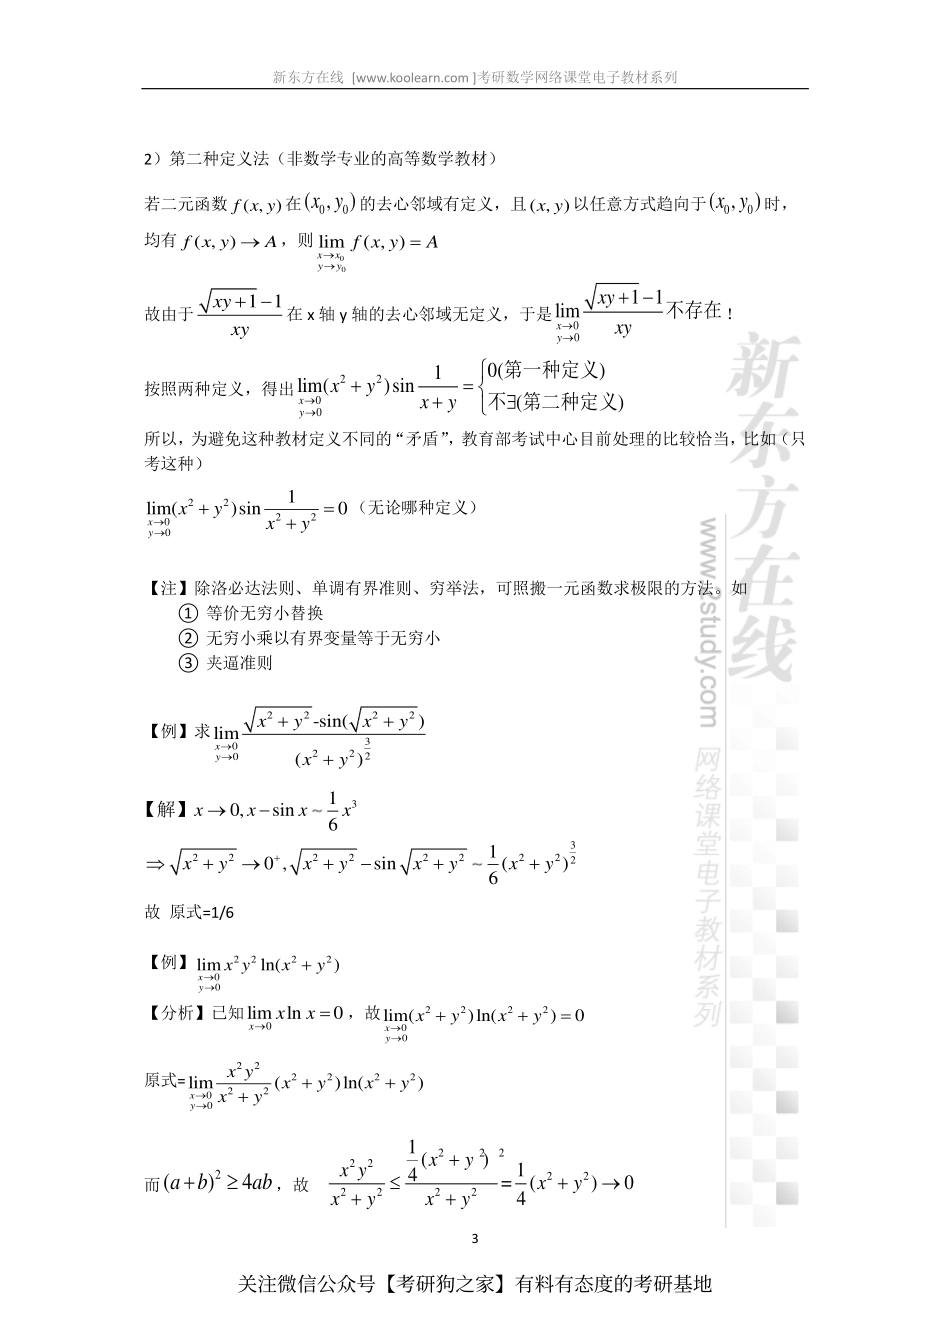 新东方在线 [www.koolearn.com ]考研数学网络课堂电子教材系列
2）第二种定义法（非数学专业的高等数学教材）
若二元函数 f(x, y) 在 (x₀, y₀) 的去心邻域有定义，且 (x, y) 以任意方式趋向于 (x₀, y₀) 时，
均有 f(x, y) → A ，则 lim_{x→x₀, y→y₀} f(x, y) = A
故由于 (√(xy+1) −1)/(xy) 在 x 轴 y 轴的去心邻域无定义，于是 lim_{x→0, y→0} (√(xy+1) −1)/(xy) 不存在！
按照两种定义，得出 lim_{x→0, y→0} (x² + y²) sin 1/(x + y) = { 0(第一种定义)
不∃(第二种定义)
所以，为避免这种教材定义不同的“矛盾”，教育部考试中心目前处理的比较恰当，比如（只
考这种）
lim_{x→0, y→0} (x² + y²) sin 1/(x² + y²) = 0（无论哪种定义）
【注】除洛必达法则、单调有界准则、穷举法，可照搬一元函数求极限的方法。如
① 等价无穷小替换
② 无穷小乘以有界变量等于无穷小
③ 夹逼准则
【例】求 lim_{x→0, y→0} (√(x² + y²) -sin(√(x² + y²)))/(x² + y²)^{3/2}
【解】x → 0, x − sin x ~ 1/6 x³
⇒ √(x² + y²) → 0⁺, √(x² + y²) − sin √(x² + y²) ~ 1/6 (x² + y²)^{3/2}
故 原式=1/6
【例】lim_{x→0, y→0} x²y² ln(x² + y²)
【分析】已知 lim_{x→0} x ln x = 0 ，故 lim_{x→0, y→0} (x² + y²) ln(x² + y²) = 0
原式= lim_{x→0, y→0} x²y²/(x² + y²) (x² + y²) ln(x² + y²)
而 (a + b)² ≥ 4ab ，故 x²y²/(x² + y²) ≤ (1/4 (x² + y²)²)/(x² + y²) = 1/4 (x² + y²) → 0
3
关注微信公众号【考研狗之家】有料有态度的考研基地
新东方在线
www.2study.com
网络课堂电子教材系列